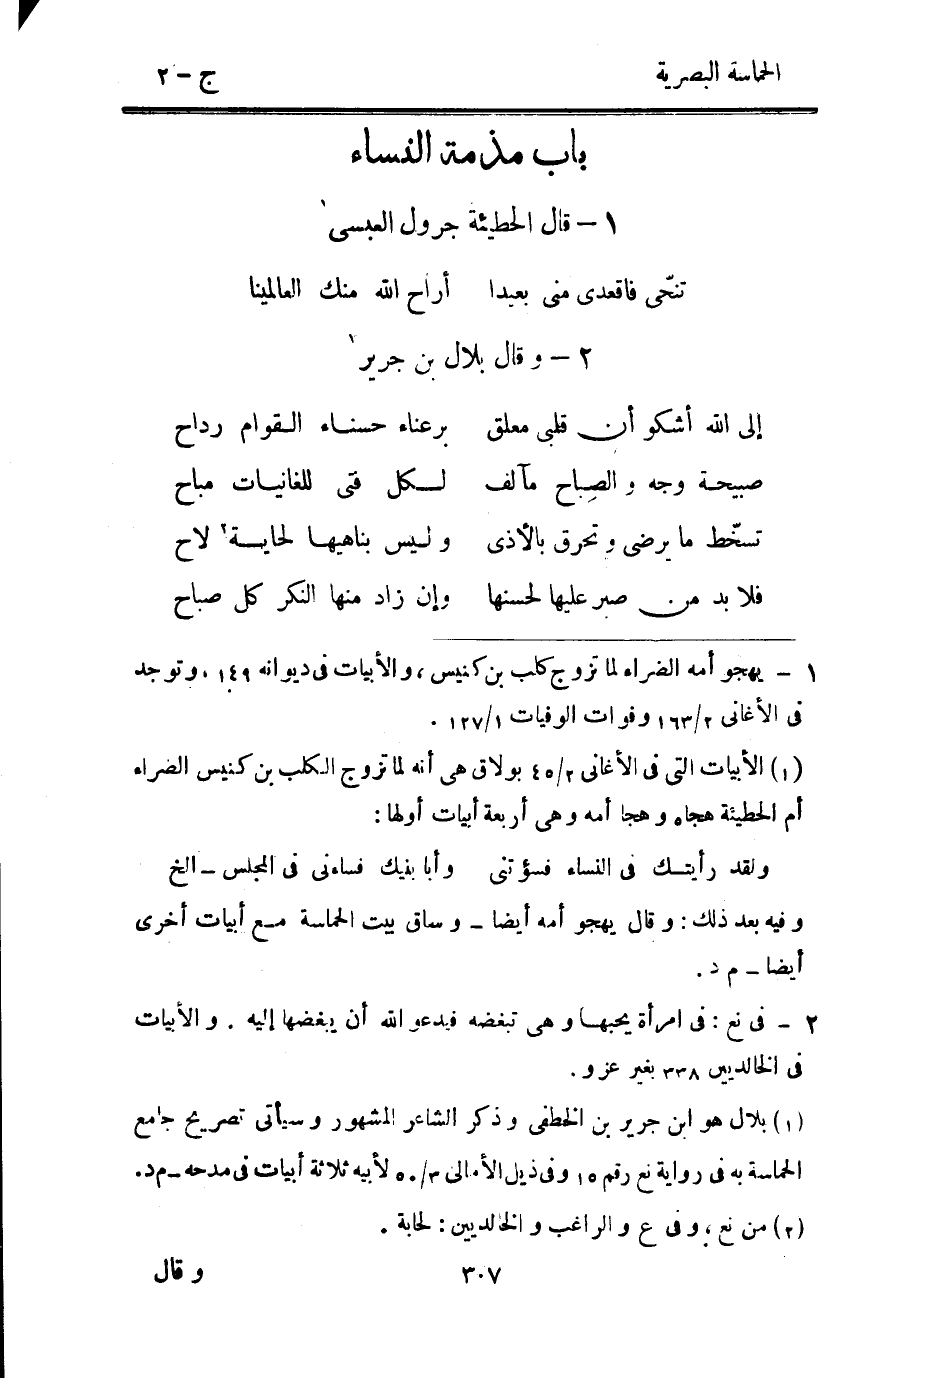 الحماسة البصرية ج - ٢
باب مذمة النساء
١ - قال الحطيئة جرول العبسى ١
تنحّى فاقعدى منى بعيدا أراح الله منك العالمينا
٢ - و قال بلال بن جرير ١
إلى الله أشكو أن قلبى معلق برعناء حسناء القوام رداح
صبيحة وجه و الصباح مآلف لكل فتى للغانيات مباح
تسخّط ما يرضى و تحرق بالأذى و ليس بناهيها لحاية ٢ لاح
فلا بد من صبر عليها لحسنها وإن زاد منها النكر كل صباح
١ - يهجو أمه الضراء لما تزوج كلب بن كنيس ، و الأبيات فى ديوانه ١٤٩ ، و توجد
فى الأغانى ١٦٣/٢ و فوات الوفيات ١٢٧/١ .
(١) الأبيات التى فى الأغانى ٤٥/٢ بولاق هى أنه لما تزوج الكلب بن كنيس الضراء
أم الحطيئة هجاه و هجا أمه و هى أربعة أبيات أولها :
و لقد رأيتك فى النساء فسؤتنى و أبا بنيك فساءنى فى المجلس - الخ
و فيه بعد ذلك : و قال يهجو أمه أيضا - و ساق بيت الحماسة مع أبيات أخرى
أيضا - م د .
٢ - فى نع : فى امرأة يحبها و هى تبغضه فيدعو الله أن يبغضها إليه . و الأبيات
فى الخالديين ٣٣٨ بغير عزو .
(١) بلال هو ابن جرير بن الخطفى و ذكر الشاعر المشهور و سيأتى تصريح جامع
الحماسة به فى رواية نع رقم ١٥ و فى ذيل الأمالى ٥٠/٣ لأبيه ثلاثة أبيات فى مدحه - م د .
(٢) من نع ، و فى ع و الراغب و الخالديين : لحابة .
٣٠٧ و قال